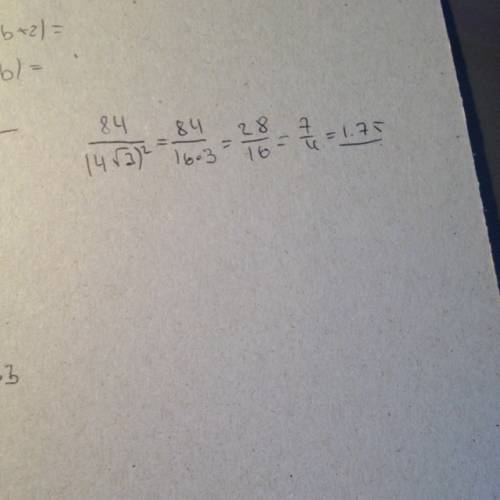 b+2)=
b)=
84/(4√3)² = 84/16·3 = 28/16 = 7/4 = 1.75
3